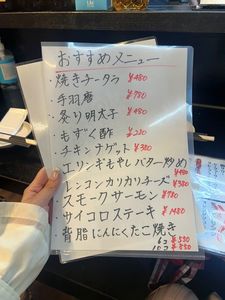 おすすめメニュー
・焼きチータラ ¥480
・手羽唐 ¥780
・炙り明太子 ¥480
・もずく酢 ¥220
・チキンナゲット ¥380
・エリンギもやしバター炒め ¥480
・レンコンカリカリチーズ ¥380
・スモークサーモン ¥780
・サイコロステーキ ¥1480
・背脂にんにくたこ焼き
6コ ¥530
10コ ¥850